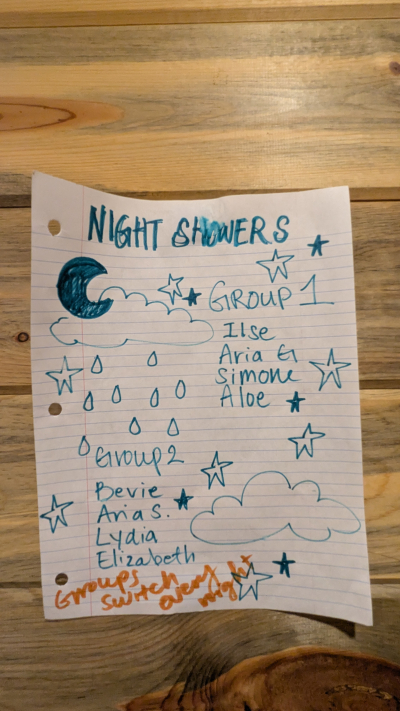 NIGHT SHOWERS
GROUP 1
Ilse
Aria G
Simone
Aloe
Group 2
Bevie
Aria S.
Lydia
Elizabeth
Groups
switch every night